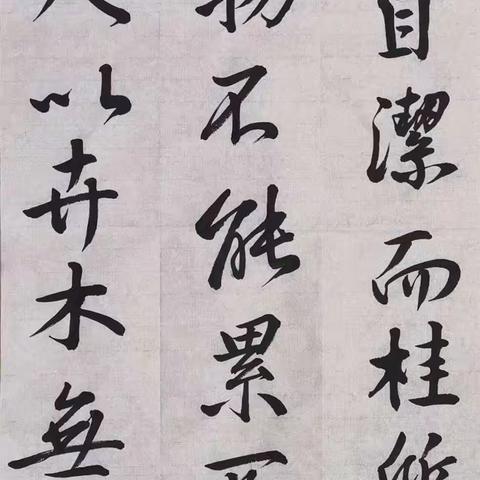 自潔而桂所
物不能累不
夫以卉木無